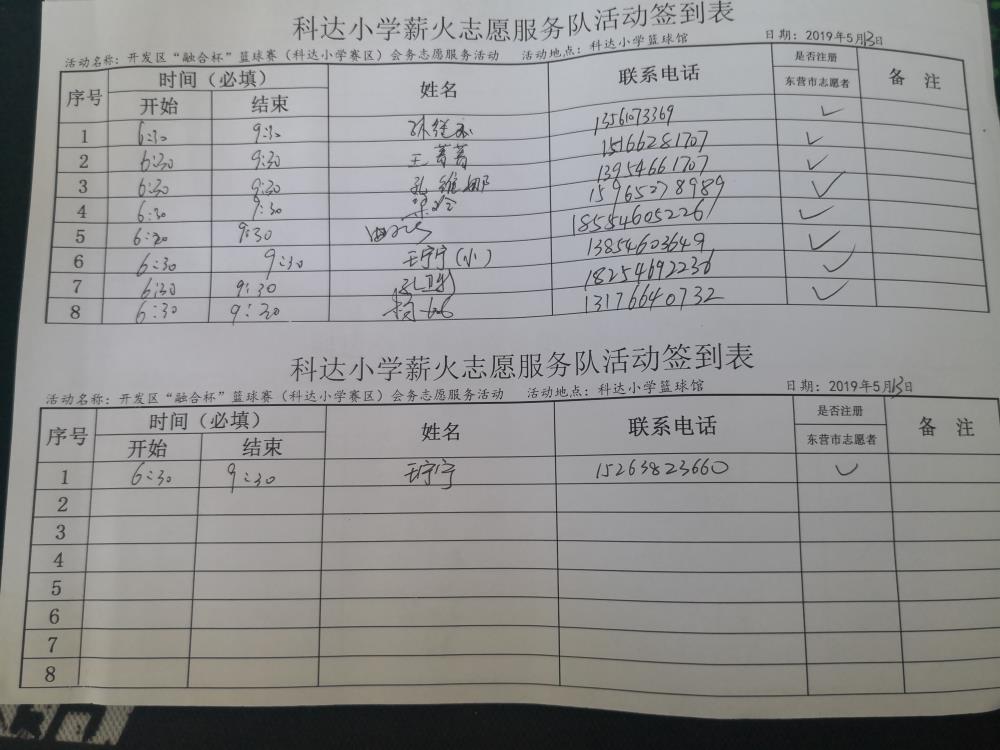 科达小学薪火志愿服务队活动签到表
活动名称：开发区“融合杯”篮球赛（科达小学赛区）会务志愿服务活动 活动地点：科达小学篮球馆 日期：2019年5月13日
序号 时间（必填） 姓名 联系电话 是否注册 备 注
开始 结束 东营市志愿者
1 6:30 9:30 13561073369 ✓
2 6:30 9:30 王菁菁 15166281707 ✓
3 6:30 9:30 孔维娜 13954661707 ✓
4 6:30 9:30 15965278989 ✓
5 6:30 9:30 18554605226 ✓
6 6:30 9:30 王宁宁（小） 13854603649 ✓
7 6:30 9:30 18254692236 ✓
8 6:30 9:30 13176640732 ✓
科达小学薪火志愿服务队活动签到表
活动名称：开发区“融合杯”篮球赛（科达小学赛区）会务志愿服务活动 活动地点：科达小学篮球馆 日期：2019年5月13日
序号 时间（必填） 姓名 联系电话 是否注册 备 注
开始 结束 东营市志愿者
1 6:30 9:30 王宁宁 15263823660 ✓
2
3
4
5
6
7
8